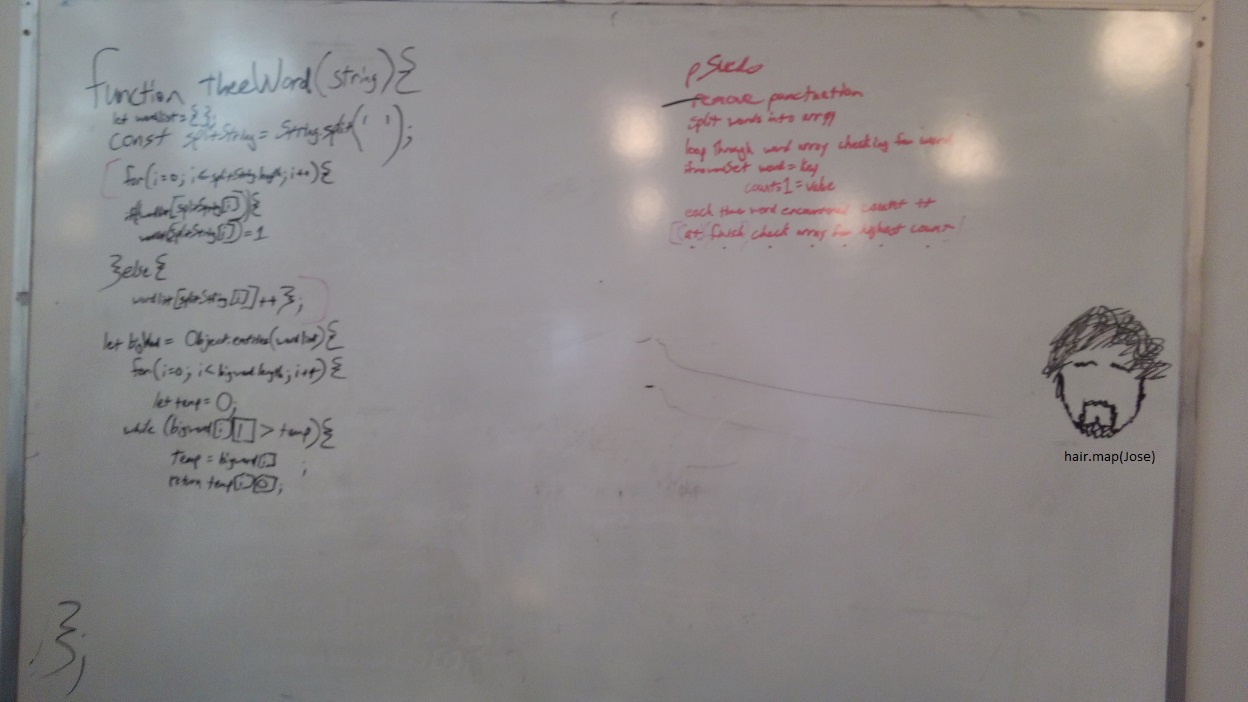 function theeWord(string){
let wordlist={};
const splitString = String.split(' ');
for(i=0; i<splitString.length; i++){
[splitString[i]]){
[splitString[i]]=1
}else{
wordlist[splitString[i]]++};
let bigWord = Object.entries(wordlist){
for(i=0; i<bigword.length; i++){
let temp = 0;
while (bigword[i][1] > temp){
temp = bigword[i] ;
return temp[i][0];
};
pSuedo
remove punctuation
split words into array
loop through word array checking for word
word = key
count:1 = value
each time word encountered count ++
at finish check array for highest count
hair.map(Jose)